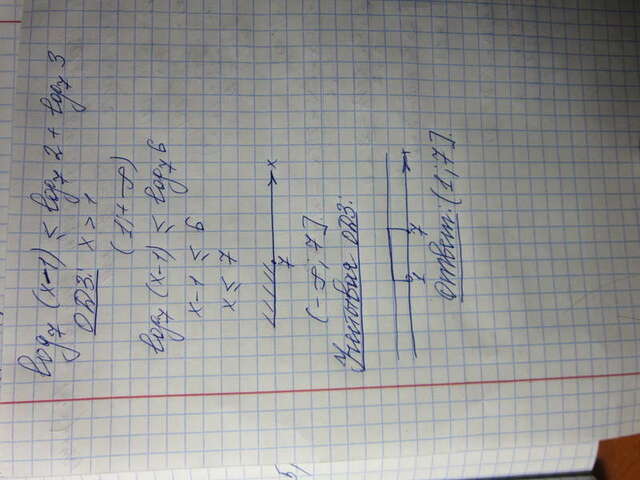 log₇ (x-1) ≤ log₇ 2 + log₇ 3
ОДЗ: x > 1
(1; +∞)
log₇ (x-1) ≤ log₇ 6
x-1 ≤ 6
x ≤ 7
7 x
(-∞; 7].
Условия ОДЗ:
1 7 x
Ответ: (1; 7].
5)